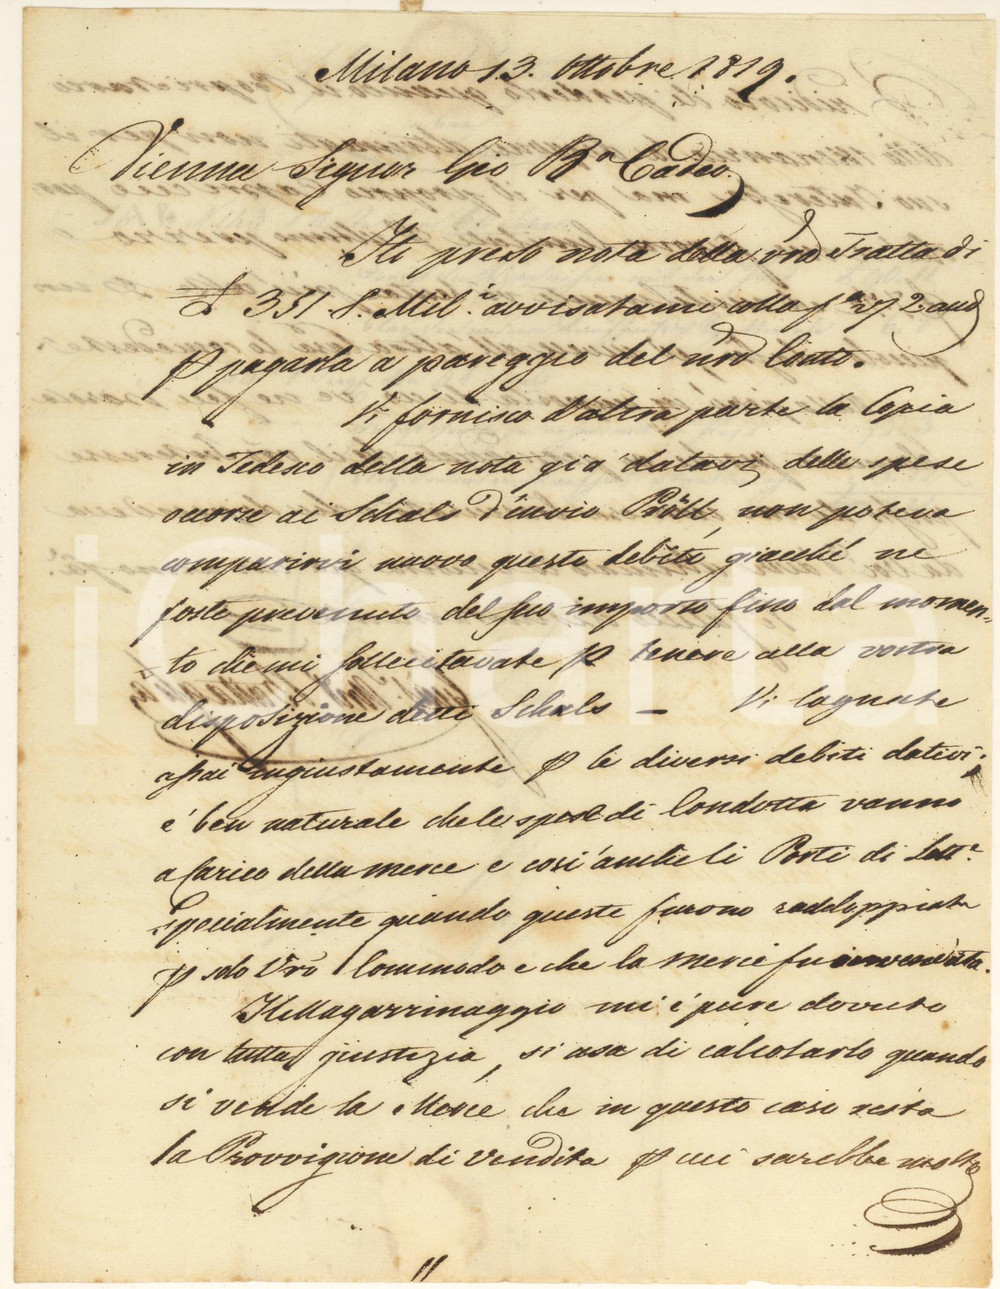 Milano 13. ottobre 1819.
Vienna Signor Gio Bª Cadeo
Hò preso nota della vrã Tratta di
£ 331 S. Mil.ⁱ avvisatami colla
p pagarla a pareggio del vrõ Conto.
Vi fornisco d'altra parte la Copia
in Tedesco della nota già datavi delle spese
ai Schals d'invio Pröll, non poteva
comparirvi nuovo questo debito giacché ne
foste prevenuto del suo importo fino dal momen-
to che mi sollecitavate p tenere alla vostra
disposizione detti Schals — Vi lagnate
assai ingiustamente p le diversi debiti dativi;
é ben naturale che le spese di Condotta vanno
a Carico della merce e così anche li Porti di Lett.ᵉ
Specialmente quando queste furono raddoppiate
p solo Vrõ Commodo e che la merce fu invenduta.
Il Magazzinaggio mi é pure dovuto
con tutta giustizia, si usa di calcolarlo quando
si vende la Merce che in questo caso resta
la Provvigione di vendita p cui sarebbe molto
iCharta